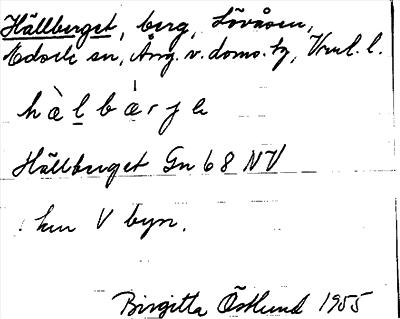 Hällberget, berg, Lövåsen,
Edsele sn, Ång. v. doms. tg, Vnl. l.
hä̀lbà̈rje
Hällberget Gn 68 NV
km V byn.
Birgitta Östlund 1955